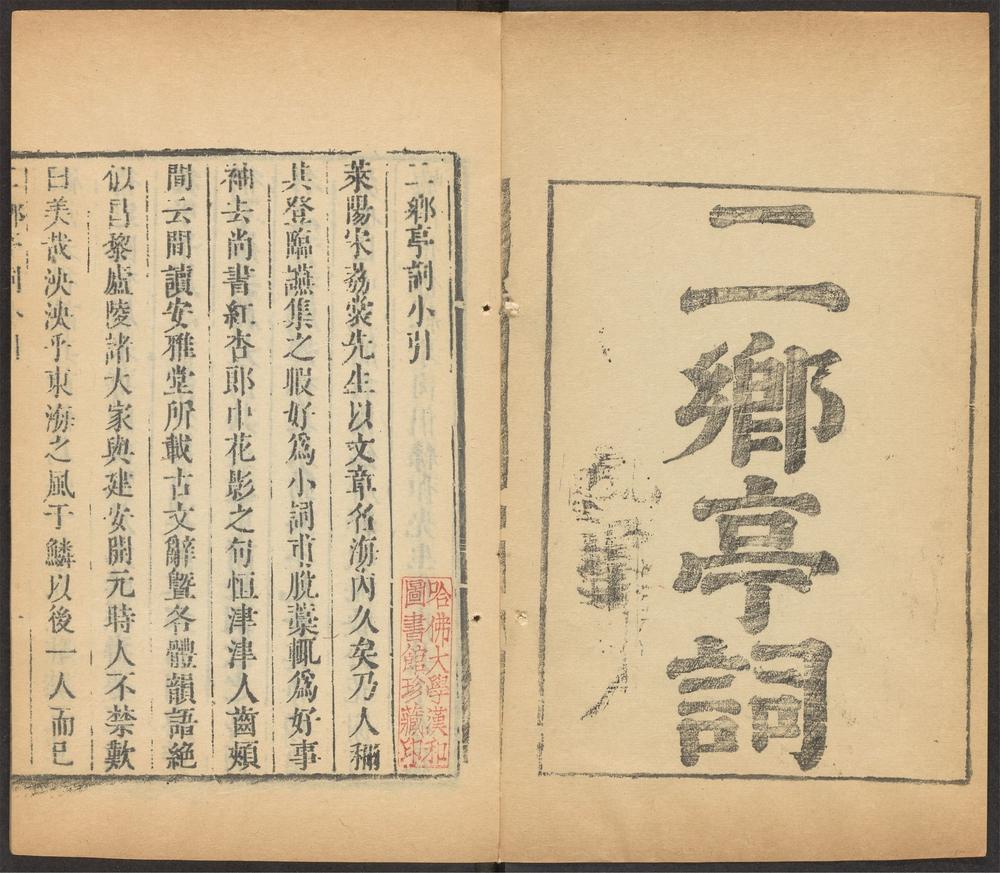 二鄉亭詞
二鄉亭詞小引
萊陽宋荔裳先生以文章名海內久矣乃人稱
其登臨讌集之暇好爲小詞甫脫藁輒爲好事
袖去尚書紅杏郎中花影之句恒津津人齒頰
間云間讀安雅堂所載古文辭曁各體韻語絶
似昌黎廬陵諸大家與建安開元時人不禁歎
曰美哉泱泱乎東海之風于鱗以後一人而已
哈佛大學漢和
圖書館珍藏印